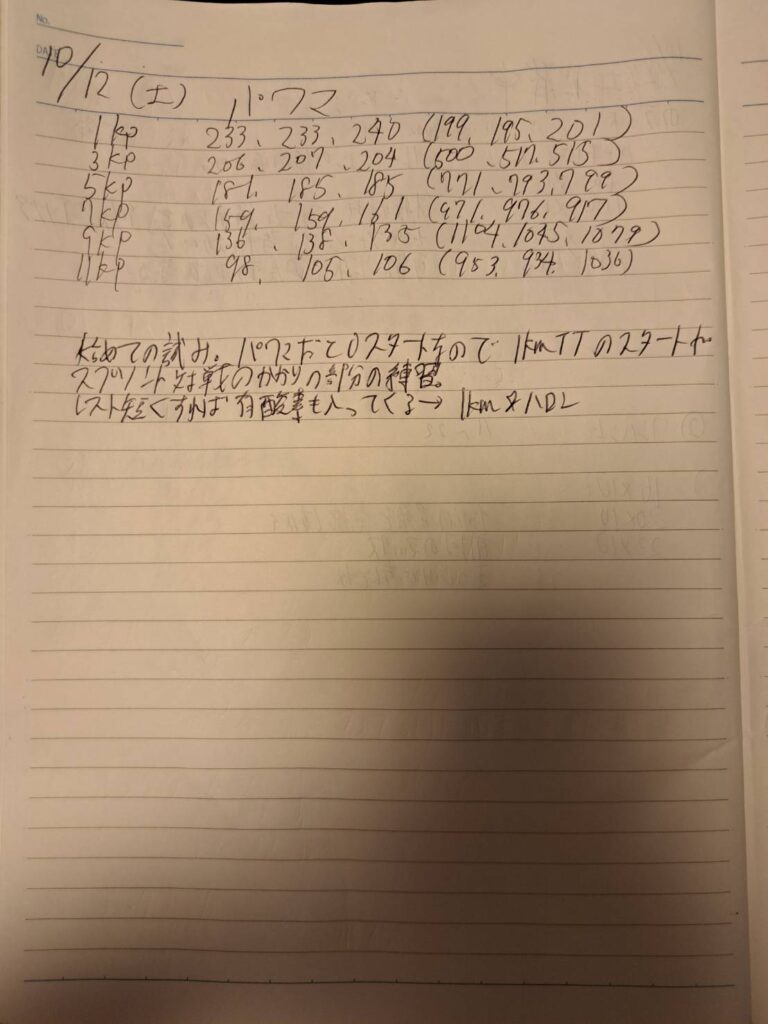 No.
DATE
10/12 (土) パワマ
1kp 233、233、240 (199、195、201)
3kp 206、207、204 (500、517、515)
5kp 181、185、185 (771、793、799)
7kp 159、159、151 (971、976、917)
9kp 136、138、135 (1104、1045、1079)
11kp 98、105、106 (953、934、1036)
始めての試み。パワマだと0スタートなので 1kmTTのスタートや
スプリント対戦のかかりの部分の練習。
レスト短くすれば有酸素も入ってくる→ 1km